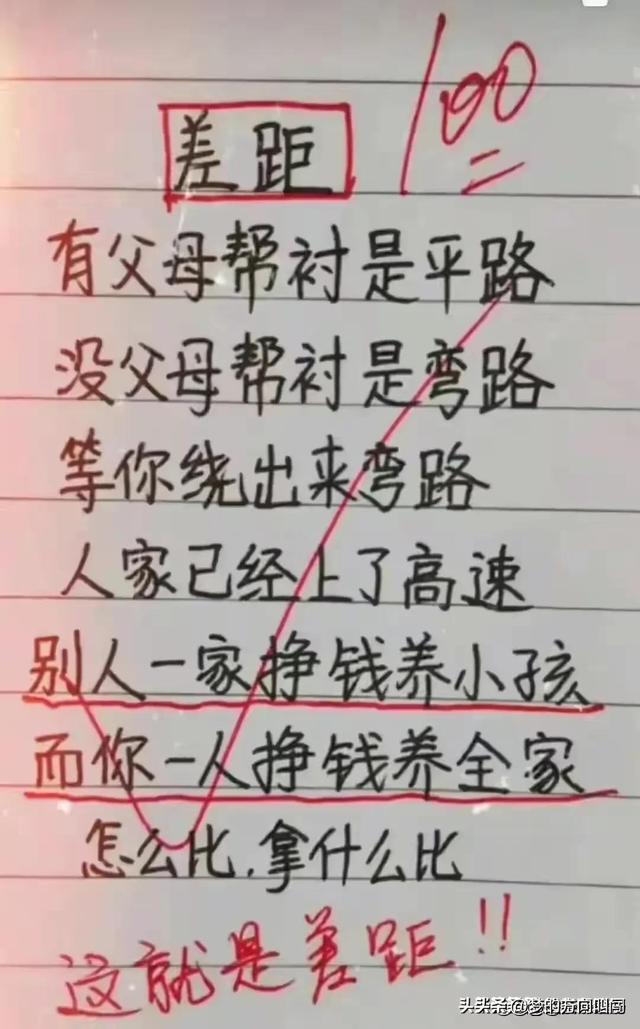 100
差距
有父母帮衬是平路
没父母帮衬是弯路
等你绕出来弯路
人家已经上了高速
别人一家挣钱养小孩
而你一人挣钱养全家
怎么比.拿什么比
这就是差距!!